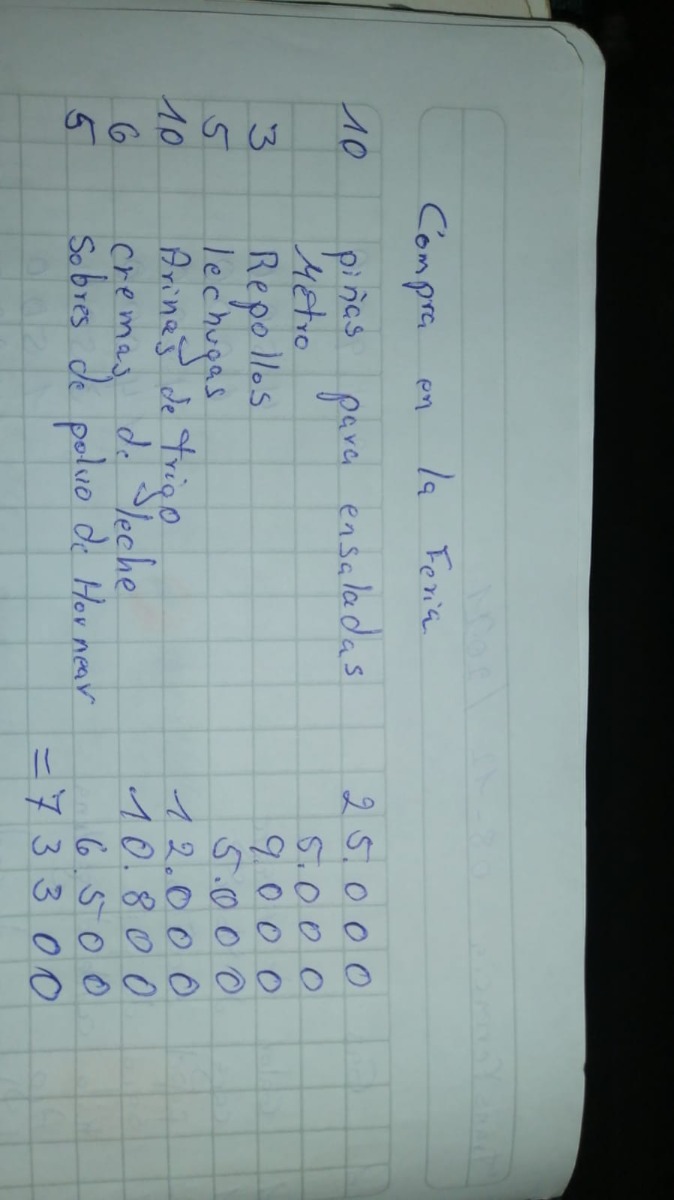 Compra en la Feria
10 piñas para ensaladas 25.000
Metro 5.000
3 Repollos 9.000
5 lechugas 5.000
10 Arinas de trigo 12.000
6 cremas de leche 10.800
5 Sobres de polvo de Hornear 6.500
=73300